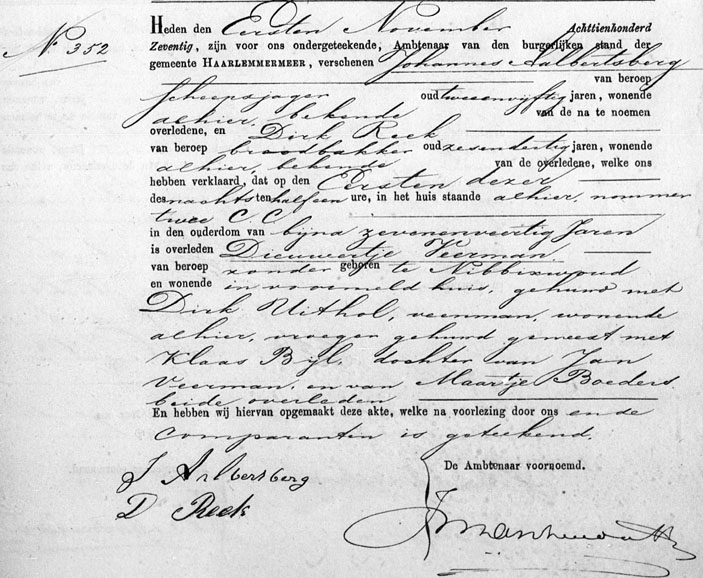 No 352
Heden den Eersten November Achttienhonderd
Zeventig, zijn voor ons ondergeteekende, Ambtenaar van den burgerlijken stand der
gemeente HAARLEMMERMEER, verschenen Johannes Aalbertsberg
van beroep
scheepsjager oud tweeenvijftig jaren, wonende
alhier, bekende van de na te noemen
overledene, en Dirk Reek
van beroep broodbakker oud zesendertig jaren, wonende
alhier, bekende van de overledene, welke ons
hebben verklaard, dat op den Eersten dezer
des nachts ten half een ure, in het huis staande alhier, nommer
twee C.C.
in den ouderdom van bijna zevenenveertig Jaren
is overleden Dieuwertje Veerman
van beroep zonder geboren te Nibbixwoud
en wonende in voormeld huis, gehuwd met
Dirk Uithol, veenman, wonende
alhier, vroeger gehuwd geweest met
Klaas Bijl, dochter van Jan
Veerman, en van Maartje Boeders
beide overleden
En hebben wij hiervan opgemaakt deze akte, welke na voorlezing door ons en de
Comparanten is geteekend.
J Aalbersberg
D Reek
De Ambtenaar voornoemd.